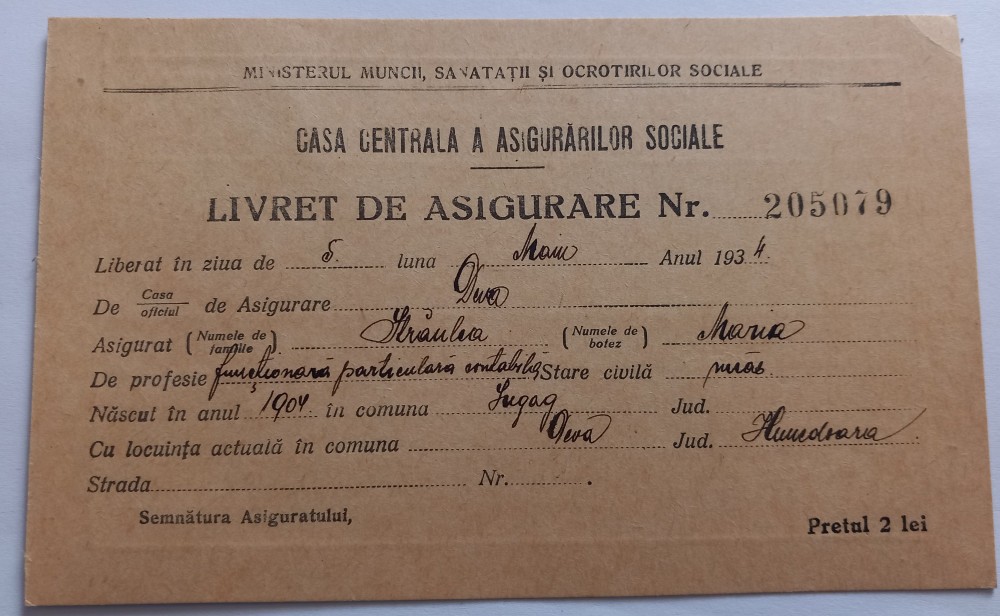 MINISTERUL MUNCII, SANATAȚII ȘI OCROTIRILOR SOCIALE
CASA CENTRALA A ASIGURĂRILOR SOCIALE
LIVRET DE ASIGURARE Nr. 205079
Liberat în ziua de 5. luna Maiu Anul 1934.
De Casa/oficiul de Asigurare Deva
Asigurat (Numele de familie) (Numele de botez) Maria
De profesie funcționară particulară contabilă Stare civilă
Născut în anul 1904 în comuna Șugag Jud.
Cu locuința actuală în comuna Deva Jud. Hunedoara
Strada Nr. .
Semnătura Asiguratului,
Prețul 2 lei